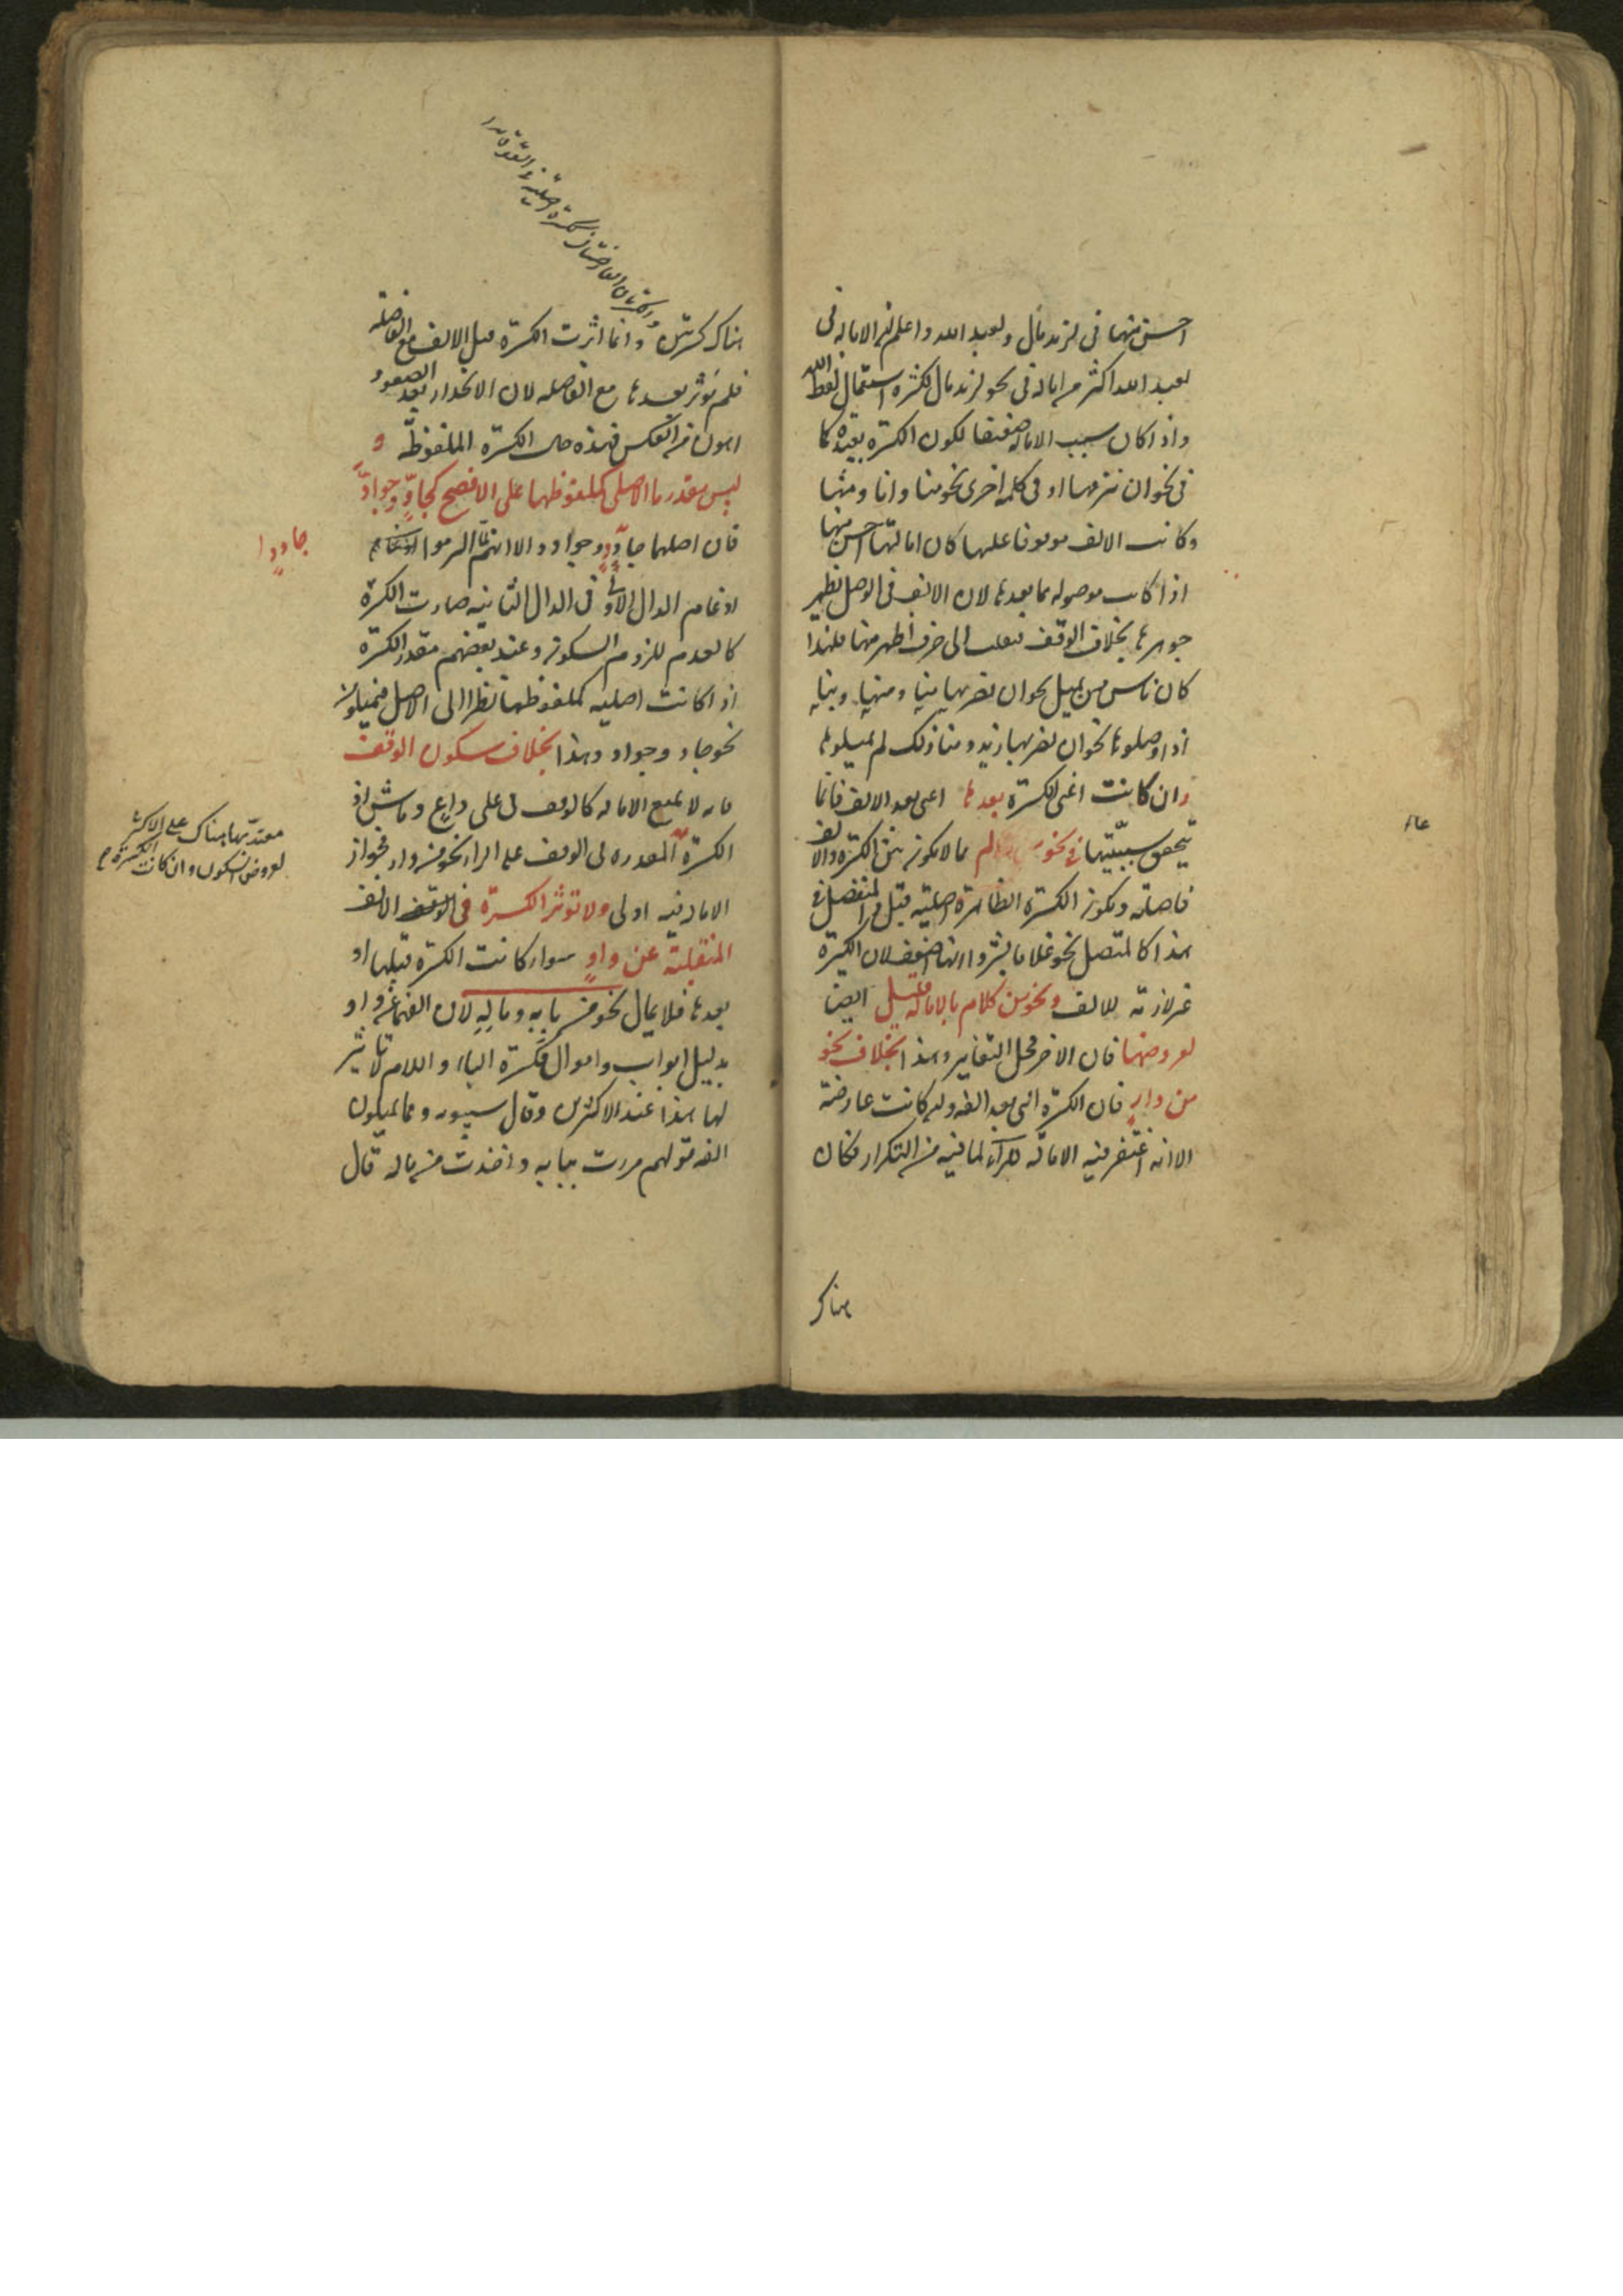 احسن منها فى لزيد مال ولعبد الله واعلم ان الاماله فى
لعبد الله اكثر من اماله فى نحو لزيد مال لكثرة استعمال لفظ الله
واذا كان سبب الاماله ضعيفا لكون الكسرة بعيدة كما
فى نحو ان ينزعها او فى كلمة اخرى نحو منا وانا ومنها
وكانت الالف موقوفا عليها كان امالتها احسن منها
اذا كانت موصولة بما بعدها لان الالف فى الوصل يظهر
جوهرها بخلاف الوقف فتقلب الى حرف اظهر منها فلهذا
كان ناس ممن يميل نحو ان يضربها ومنا ومنها وبنا
اذا وصلوها نحو ان يضربها زيد ومنا ذلك لم يميلوها
وان كانت اعنى الكسرة بعدها اعنى بعد الالف فانما
يتحقق سببيتها فى نحو عالم مما لا يكون بين الكسرة والالف
فاصلة ويكون الكسرة الظاهرة اصلية قيل والمنفصل فى
هذا كالمتصل نحو غلاما بشر وانها اضعف لان الكسرة
غير لازمة للالف ونحو من كلام بالامالة قليل ايضا
لعروضها فان الاخر محل التغاير وهذا بخلاف نحو
من دار فان الكسرة التى بعد الفه وان كانت عارضة
الا انه اغتفر فيه الامالة للراء لما فيه من التكرار فكان
عا
هناك
هناك كسرتين وانما اثرت الكسرة قبل الالف مع الفاصلة
فلم تؤثر بعدها مع الفاصلة لان الانحدار بعد الصعود
اهون من العكس فهذه حال الكسرة الملفوظة و
ليس مقدرها الاصلى كملفوظها على الافصح كجادّ وجوادّ
فان اصلهما جادد وجوادد الا انهم لما التزموا
ادغام الدال الاولى فى الدال الثانيه صارت الكسرة
كالعدم للزوم السكون وعند بعضهم مقدر الكسرة
اذا كانت اصلية كملفوظها نظرا الى الاصل فيميلون
نحو جاد وجواد وهذا بخلاف سكون الوقف
فانه لا يمنع الاماله كالوقف فى على داع وماش اذ
الكسرة المقدرة فى الوقف على الراء نحو من دار فجواز
الامالة فيه اولى ولا تؤثر الكسرة فى الالف
المنقلبة عن واو سواء كانت الكسرة قبلها او
بعدها فلا يمال نحو من بابه وماله لان الفهما عن واو
بدليل ابواب واموال فكسرة الباء واللام لا تاثير
لها هذا عند الاكثرين وقال سيبويه ومما يميلون
الفه قولهم مررت ببابه واخذت من ماله قال
جاددا
معتد بها هناك على الاكثر
لعروض السكون وان كانت الكسرة